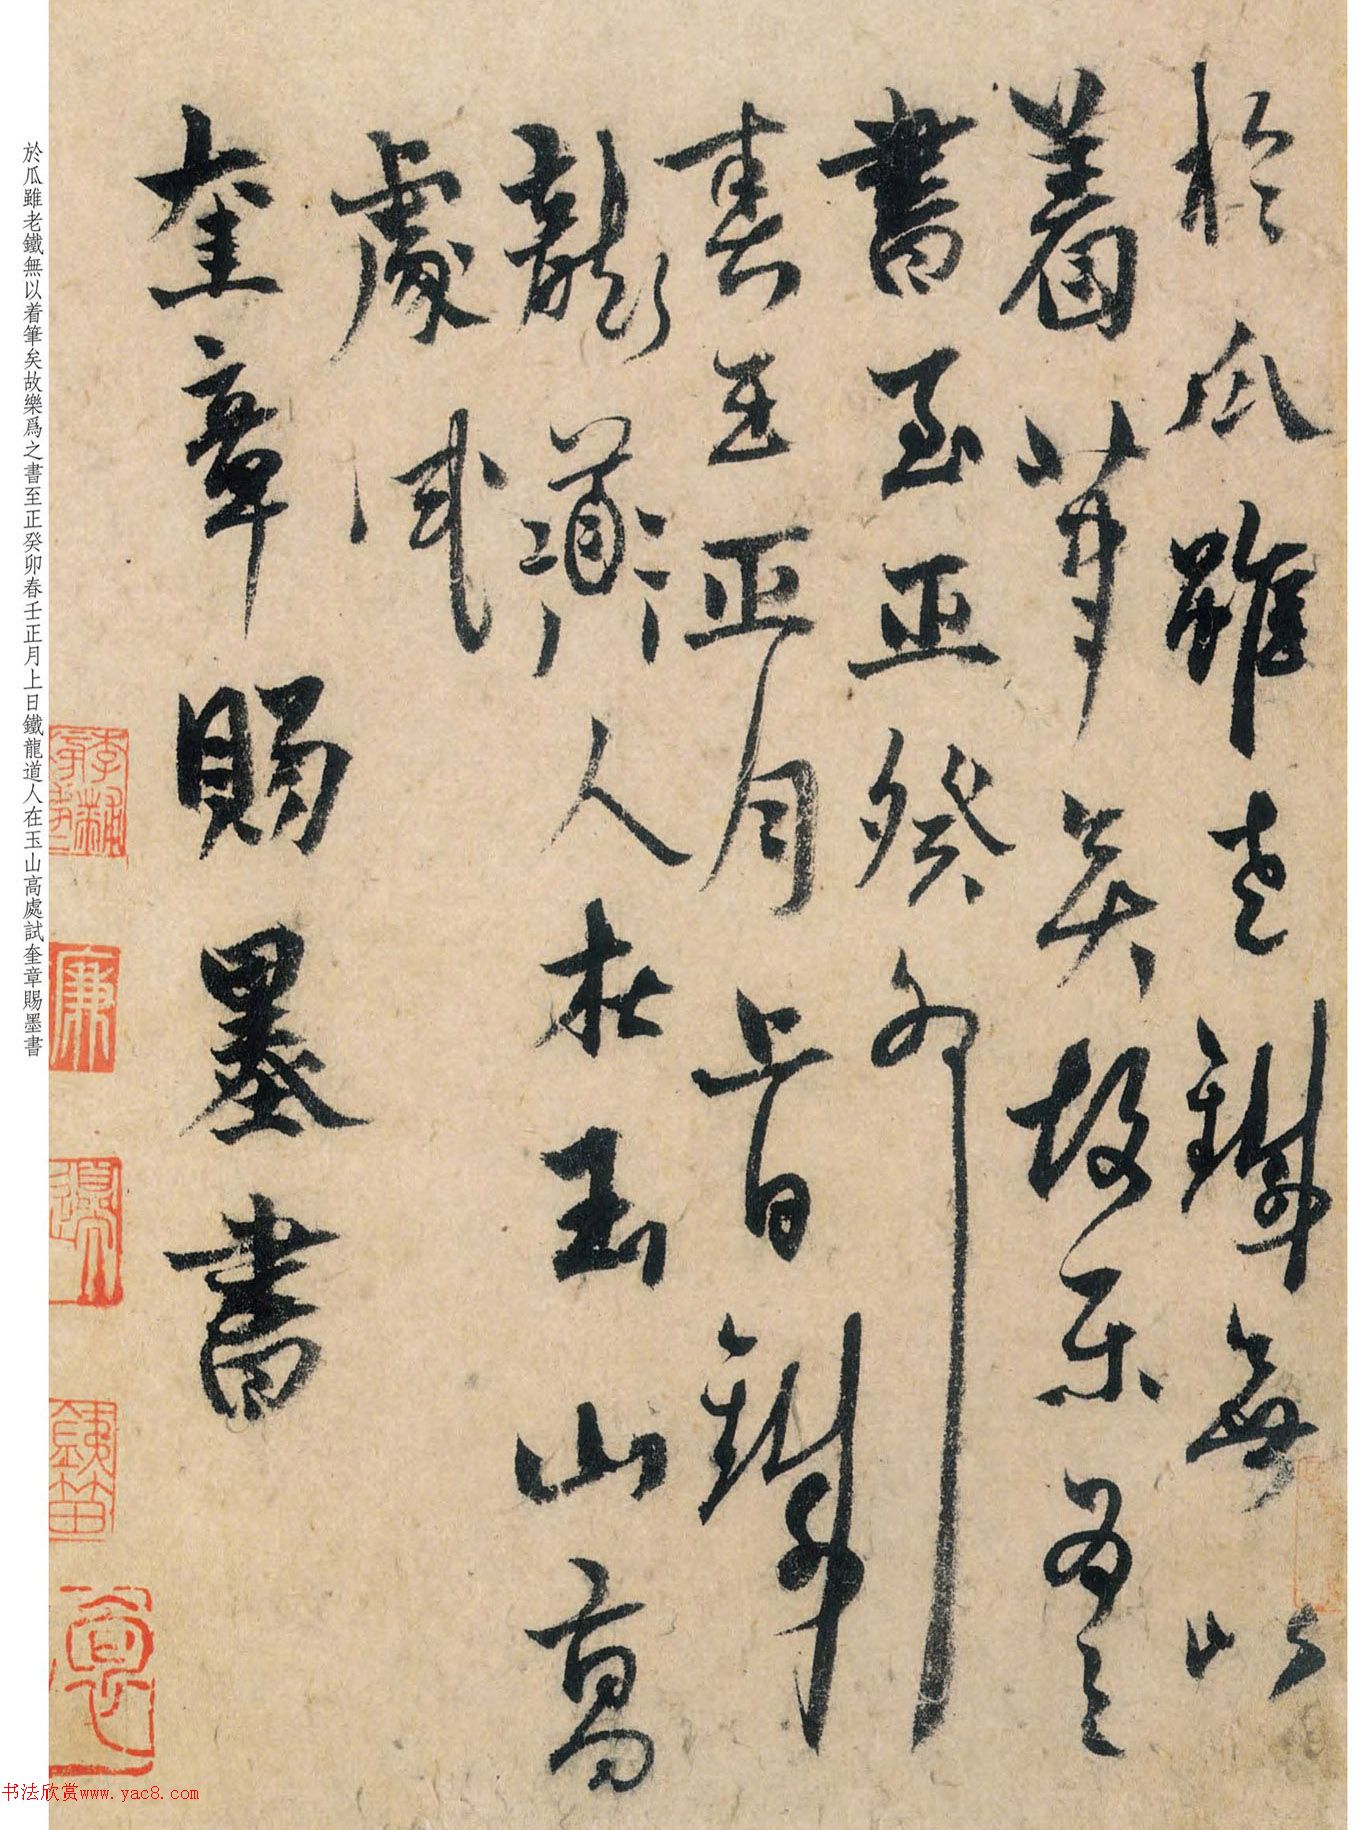 於瓜雖老鐵無以
着筆矣故樂爲之
書至正癸卯
春王正月上日鐵
龍道人在玉山高
處試
奎章賜墨書
於瓜雖老鐵無以着筆矣故樂爲之書至正癸卯春壬正月上日鐵龍道人在玉山高處試奎章賜墨書
书法欣赏www.yac8.com